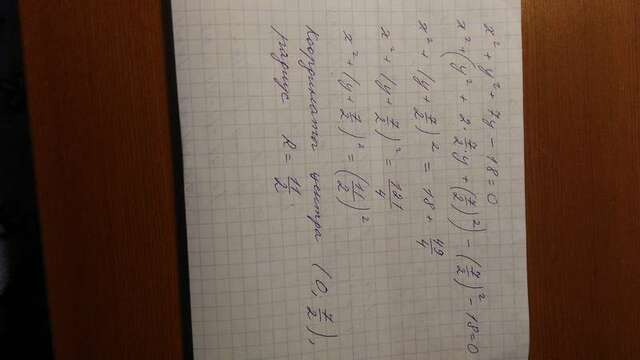 x² + y² + 7y - 18 = 0
x² + (y² + 2·7/2·y + (7/2)²) - (7/2)² - 18 = 0
x² + (y + 7/2)² = 18 + 49/4
x² + (y + 7/2)² = 121/4
x² + (y + 7/2)² = (11/2)²
Координаты центра (0, 7/2),
радиус R = 11/2